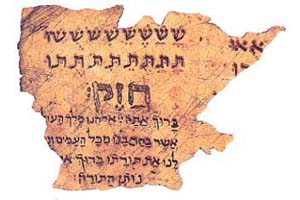 ש ש ש ש ש ש ש שו
ת ת ת ת ת ת ת תו
חזק:
ברוך אתה אלהינו מלך העו
אשר בחר בנו מכל העמים
לנו את תורתו ברוך
נותן התורה: